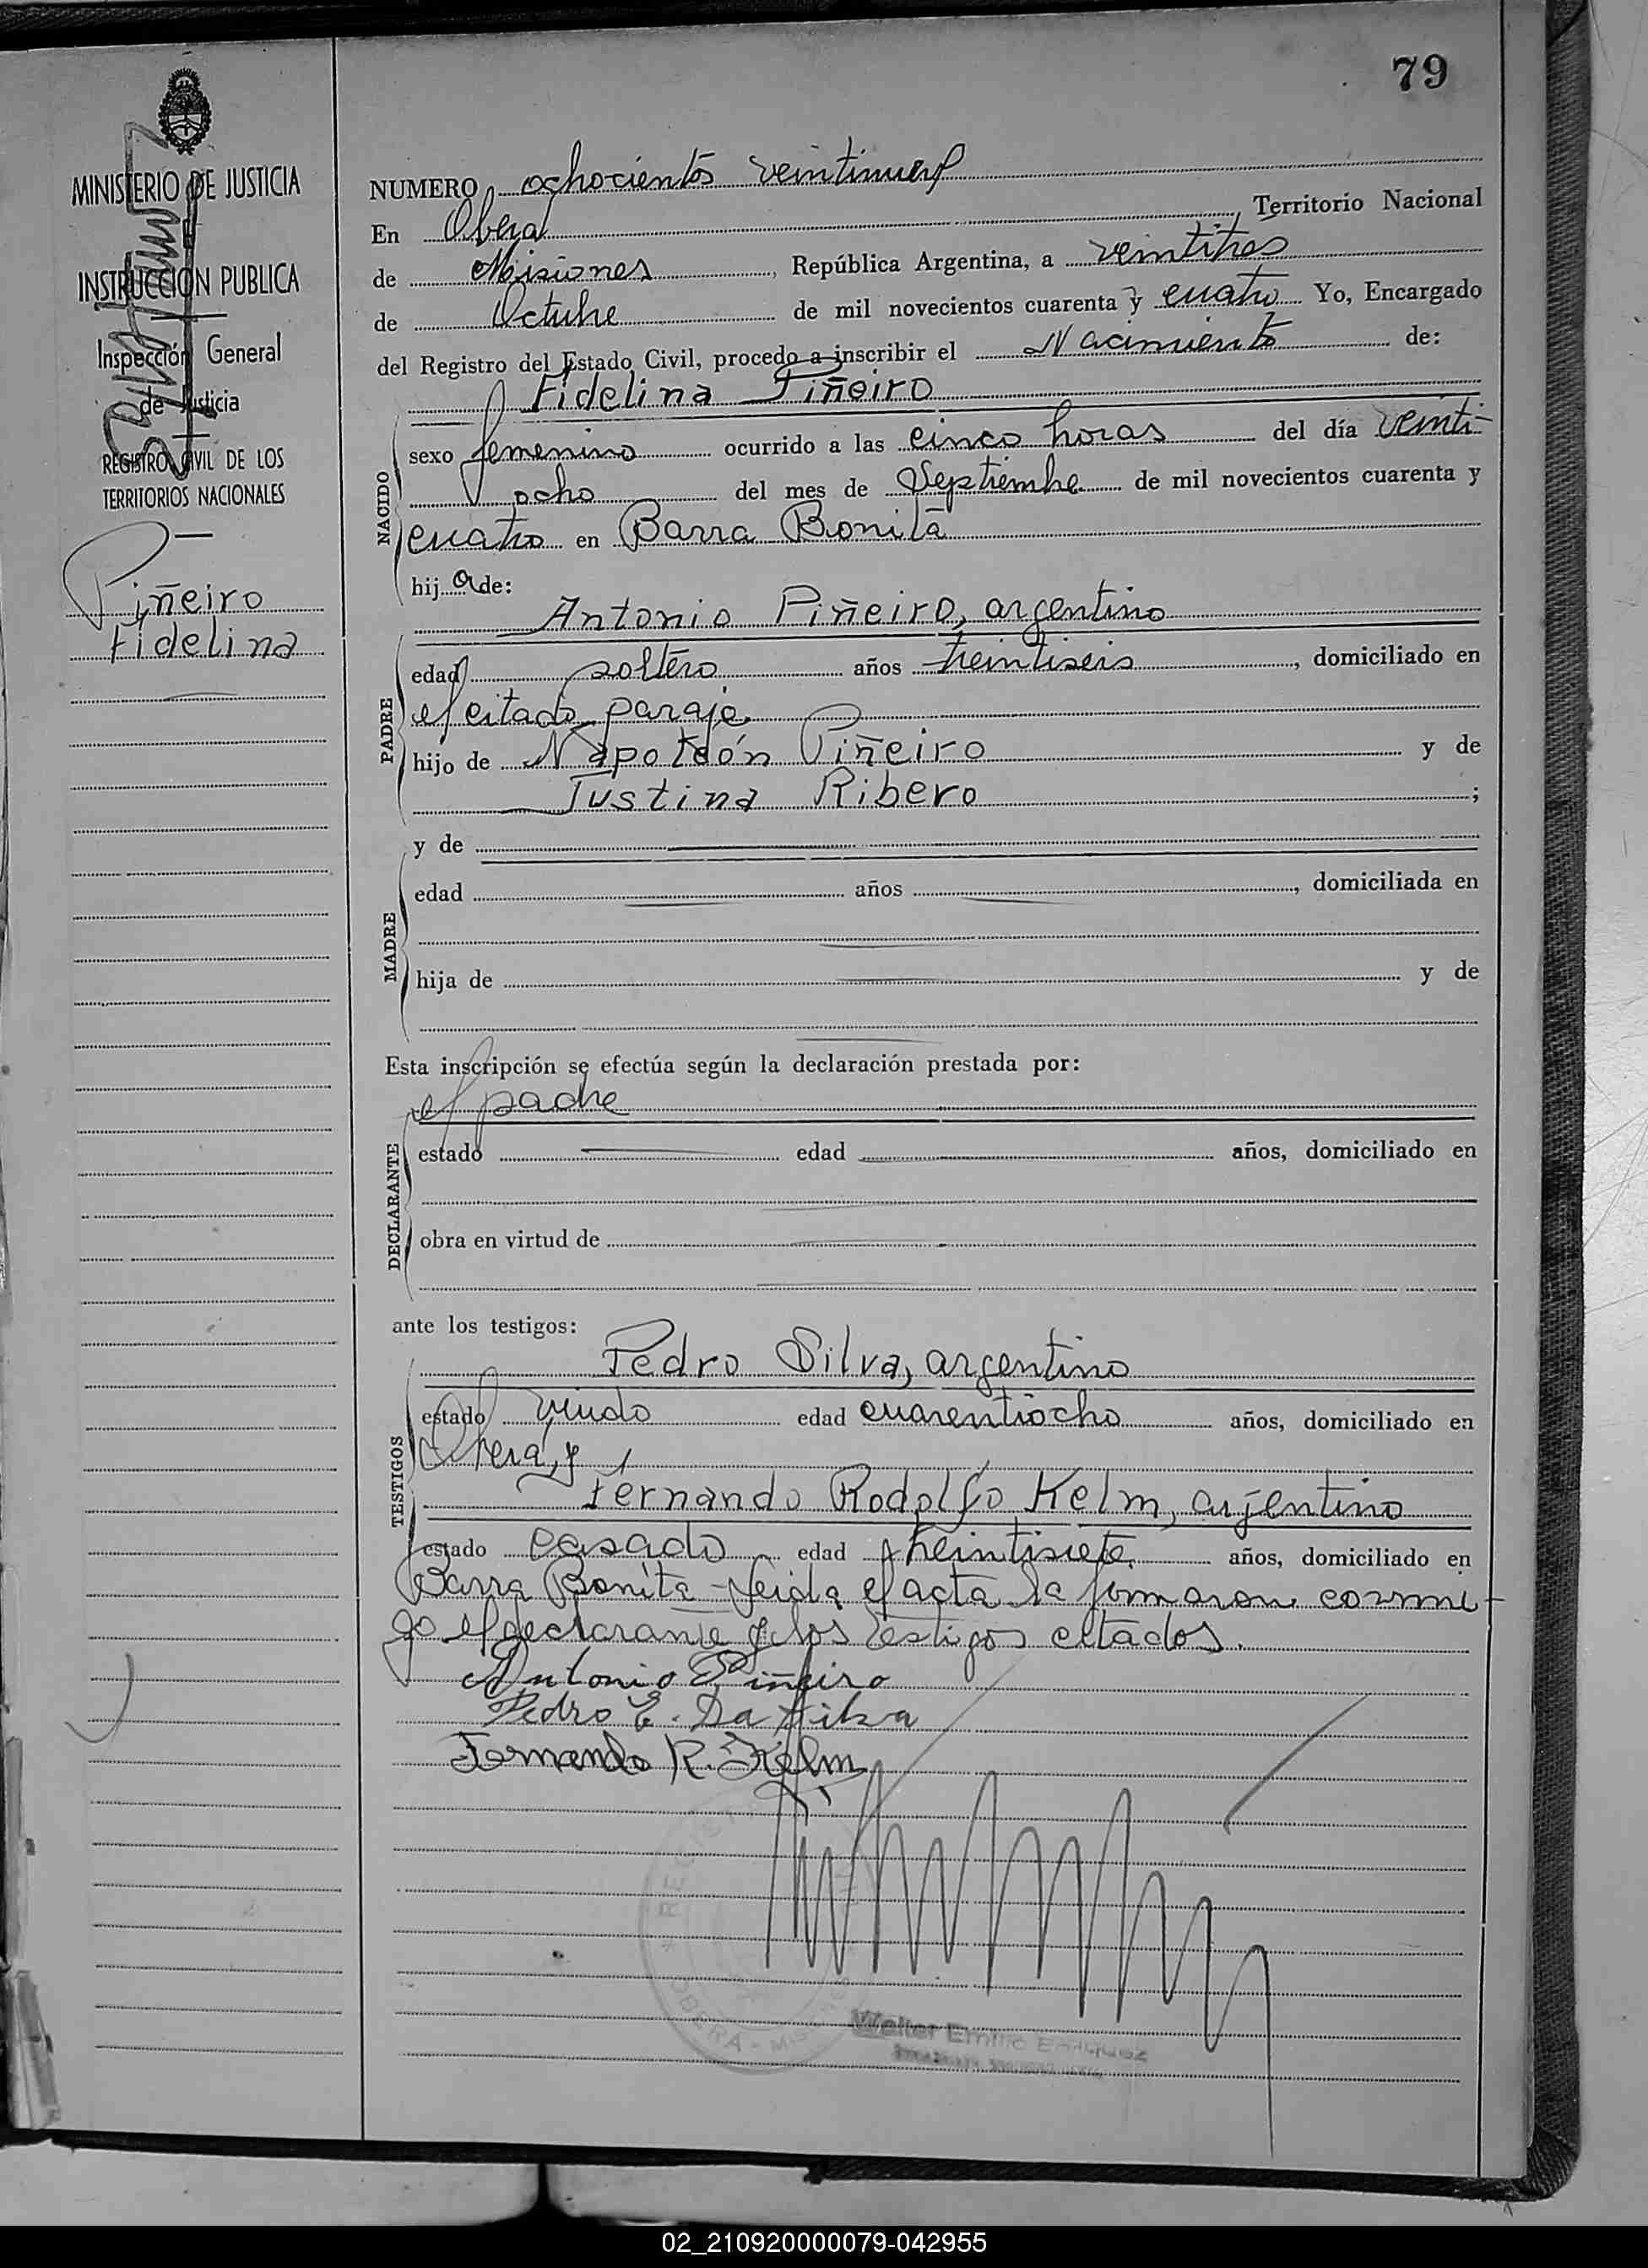 79
MINISTERIO DE JUSTICIA
INSTRUCCION PUBLICA
Inspección General
de Justicia
REGISTRO CIVIL DE LOS
TERRITORIOS NACIONALES
Piñeiro
Fidelina
NUMERO ochocientos veintinueve
En Oberá, Territorio Nacional
de Misiones, República Argentina, a veintitres
de Octubre de mil novecientos cuarenta y cuatro Yo, Encargado
del Registro del Estado Civil, procedo a inscribir el Nacimiento de:
Fidelina Piñeiro
NACIDO
sexo femenino ocurrido a las cinco horas del día veinti-
ocho del mes de Septiembre de mil novecientos cuarenta y
cuatro en Barra Bonita
hija de:
Antonio Piñeiro, argentino
PADRE
edad soltero años treintiseis, domiciliado en
el citado paraje
hijo de Napoleón Piñeiro y de
Justina Ribero;
y de
MADRE
edad años, domiciliada en
hija de y de
Esta inscripción se efectúa según la declaración prestada por:
el padre
DECLARANTE
estado edad años, domiciliado en
obra en virtud de
ante los testigos:
Pedro Silva, argentino
TESTIGOS
estado viudo edad cuarentiocho años, domiciliado en
Oberá, y
Fernando Rodolfo Kelm, argentino
estado casado edad treintisiete años, domiciliado en
Barra Bonita - Leida el acta la firmaron conmi-
go el declarante y los testigos citados.
Antonio Piñeiro
Pedro E. Da Silva
Fernando R. Kelm
OBERA - MISIONES
Walter Emilio Enriquez
02_210920000079-042955